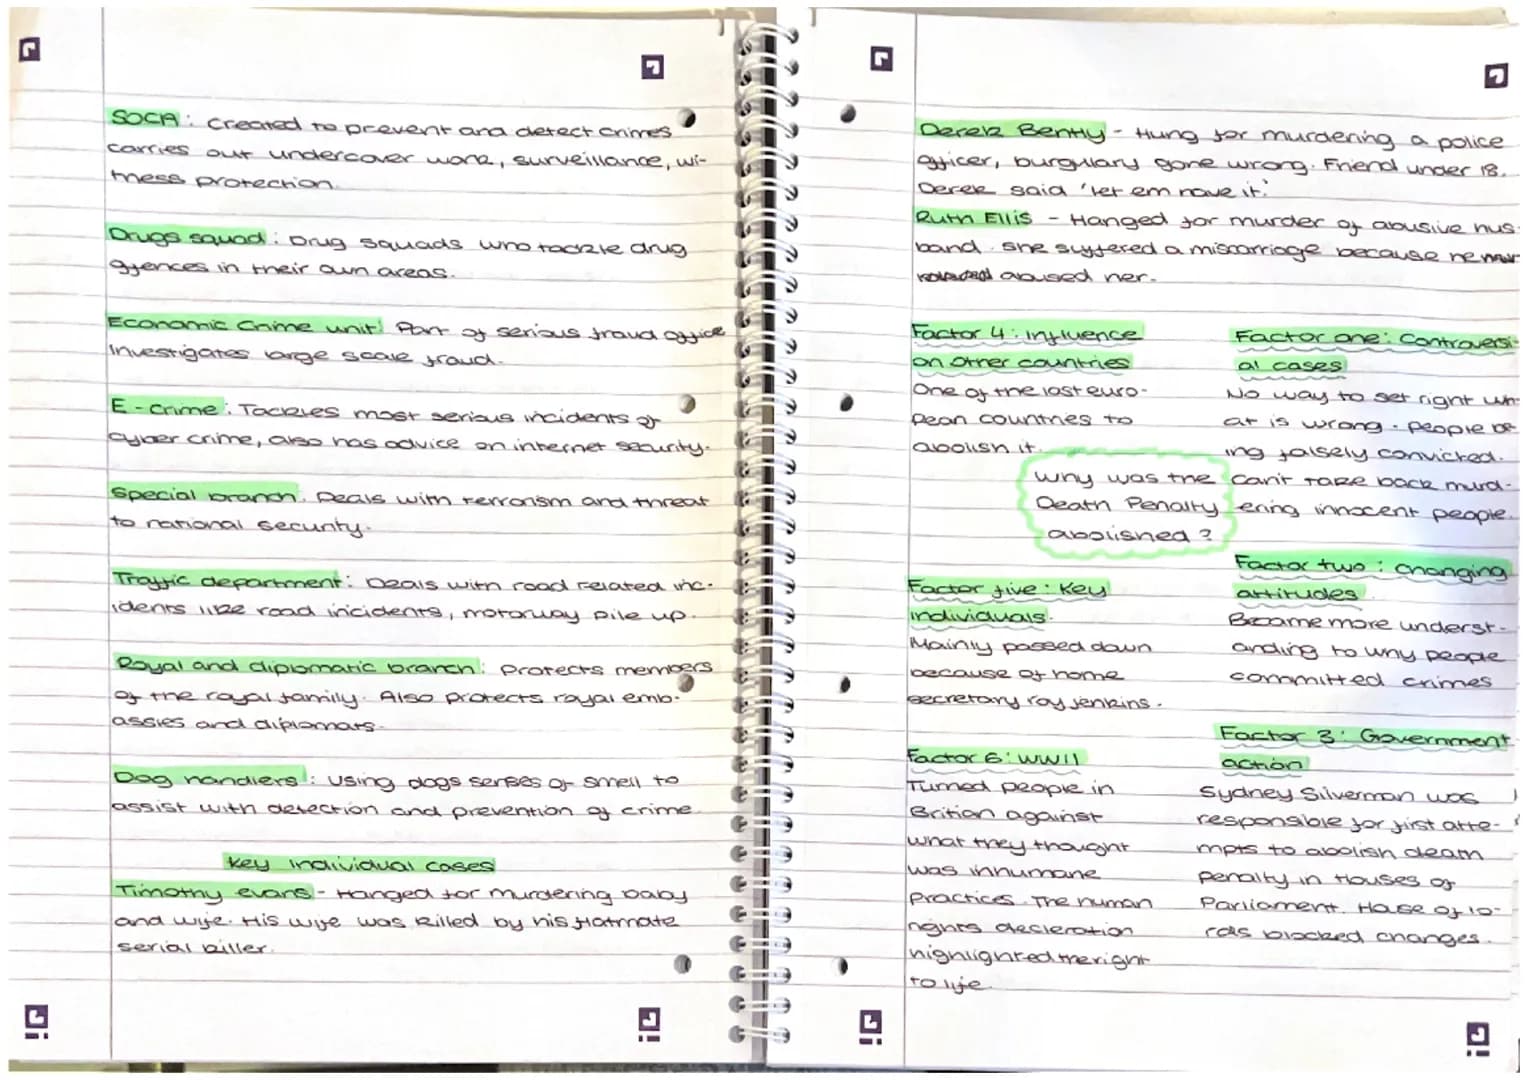 SOCA: Created to prevent and detect crimes
carries out undercover work, surveillance, wi-
tness protection.
Drugs squad: Drug squads who tackle drug
offences in their own areas.
Economic Crime unit: Part of serious fraud office
Investigates large scale fraud.
E-crime: Tackles most serious incidents of
cyber crime, also has advice on internet security.
Special branch. Deals with terrorism and threat
to national security.
Traffic department: Deals with road related inc-
idents like road incidents, motorway pile up.
Royal and diplomatic branch: Protects members
of the royal family. Also protects royal emb-
assies and diplomats.
Dog handlers: Using dogs senses of smell to
assist with detection and prevention of crime
key individual cases
Timothy evans - Hanged for murdering baby
and wife. His wife was killed by his flatmate
serial killer.
Derek Bently - Hung for murdering a police
officer, burgulary gone wrong. Friend under 18.
Derek said 'let em have it.'
Ruth Ellis - Hanged for murder of abusive hus-
band. She suffered a miscarriage because he
abused her.
Factor 4: influence
on other countries
One of the last euro-
pean countries to
abolish it.
Why was the
Death Penalty
abolished?
Factor five: Key
individuals.
Mainly passed down
because of home
secretary roy jenkins.
Factor 6: WWII
Turned people in
Brition against
what they thought
was inhumane
practices. The human
rights decleration
highlighted the right
to life.
Factor one: Controversi-
al cases
No way to set right wh-
at is wrong. People be-
ing falsely convicted.
Can't take back murd-
ering innocent people.
Factor two: changing
attitudes
Became more underst-
anding to why people
committed crimes
Factor 3: Government
action
Sydney Silverman was
responsible for first atte-
mpts to abolish death
penalty in Houses of
Parliament. House of lo-
rds blocked changes.